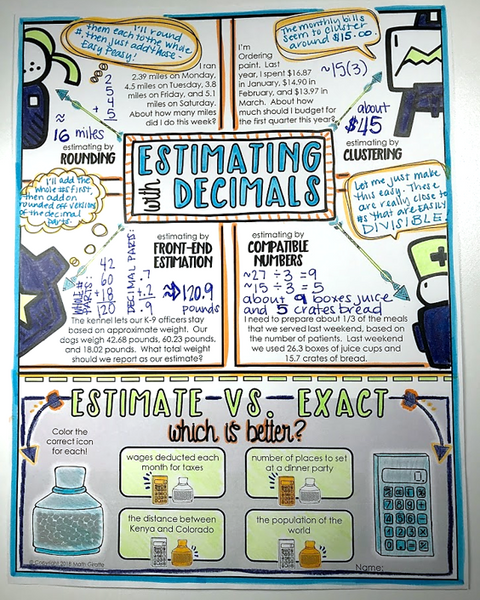 I'll round
them each to the whole
#, then just add those.
Easy Peasy!
I ran
2.39 miles on Monday,
4.5 miles on Tuesday, 3.8
miles on Friday, and 5.1
miles on Saturday.
About how many miles
did I do this week?
2
5
4
+ 5
≈
16 miles
estimating by
ROUNDING
The monthly bills
seem to cluster
around $15.00.
I'm
Ordering
paint. Last
year, I spent $16.87
in January, $14.90 in
February, and $13.97 in
March. About how
much should I budget for
the first quarter this year?
~15(3)
about
$45
estimating by
CLUSTERING
ESTIMATING
with DECIMALS
I'll add the
whole #s first,
then add on
rounded off versions
of the decimal
parts.
estimating by
FRONT-END
ESTIMATION
WHOLE # PARTS:
42
60
+18
120
DECIMAL PARTS:
.7
+.2
.9
≈120.9
pounds
The kennel lets our K-9 officers stay
based on approximate weight. Our
dogs weigh 42.68 pounds, 60.23 pounds,
and 18.02 pounds. What total weight
should we report as our estimate?
Let me just make
this easy. These
are really close to
#s that are EASILY
DIVISIBLE.
estimating by
COMPATIBLE
NUMBERS
~27 ÷ 3 = 9
~15 ÷ 3 = 5
about 9 boxes juice
and 5 crates bread
I need to prepare about 1/3 of the meals
that we served last weekend, based on
the number of patients. Last weekend
we used 26.3 boxes of juice cups and
15.7 crates of bread.
ESTIMATE VS. EXACT
which is better?
Color the
correct icon
for each!
wages deducted each
month for taxes
number of places to set
at a dinner party
the distance between
Kenya and Colorado
the population of the
world
© Copyright 2018 Math Giraffe
Name: